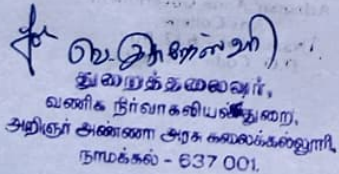 துறைத்தலைவர்,
வணிக நிர்வாகவியல்துறை,
அறிஞர் அண்ணா அரசு கலைக்கல்லூரி,
நாமக்கல் - 637 001.